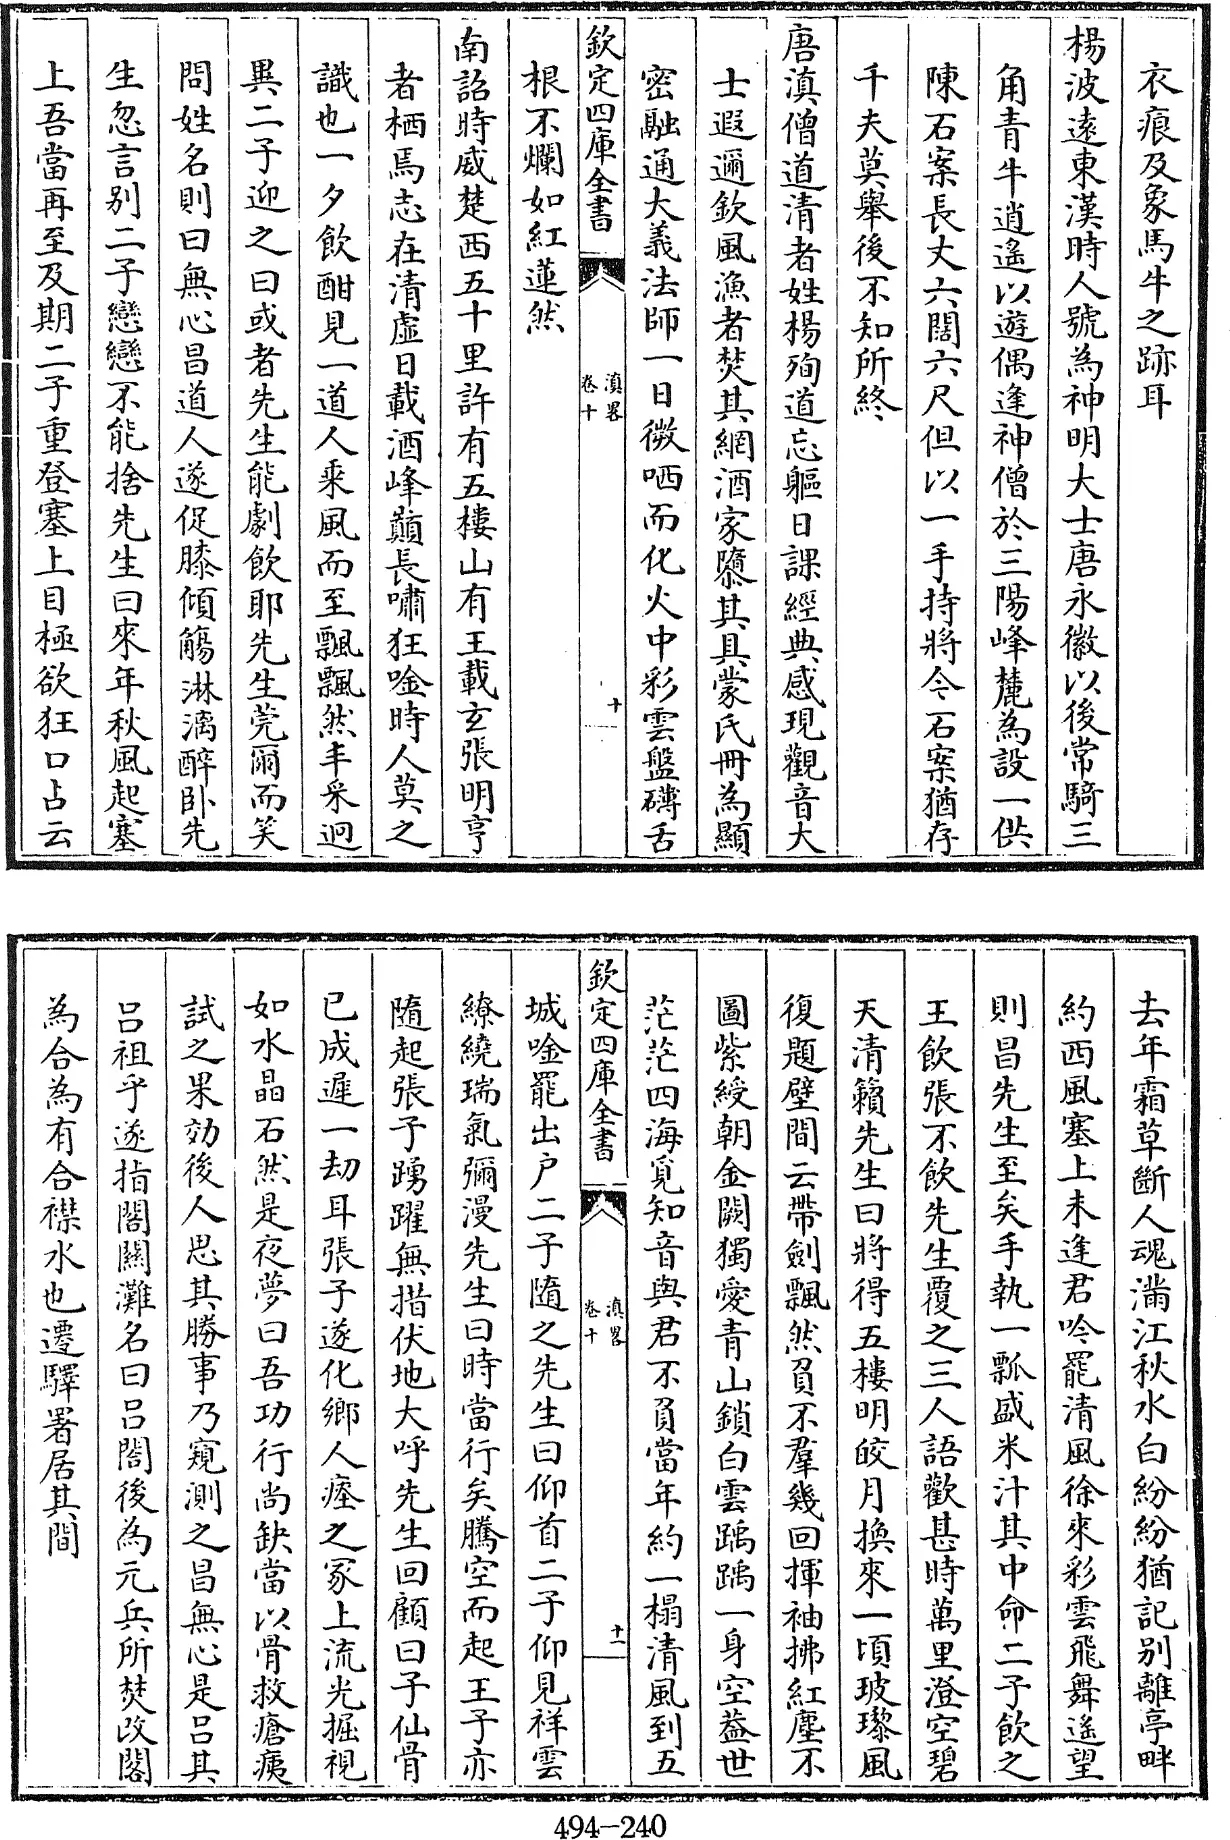 衣痕及象馬牛之跡耳
楊波遠東漢時人號為神明大士唐永徽以後常騎三
角青牛逍遙以遊偶逢神僧於三陽峰麓為設一供
陳石案長丈六闊六尺但以一手持將今石案猶存
千夫莫舉後不知所終
唐滇僧道清者姓楊殉道忘軀日課經典感現觀音大
士遐邇欽風漁者焚其網酒家隳其具蒙氏冊為顯
密融通大義法師一日微哂而化火中彩雲盤礴舌
欽定四庫全書
滇畧
卷十
十
根不爛如紅蓮然
南詔時威楚西五十里許有五樓山有王載玄張明亨
者栖焉志在清虛日載酒峰巔長嘯狂唫時人莫之
識也一夕飲酣見一道人乘風而至飄飄然丰采迥
異二子迎之曰或者先生能劇飲耶先生莞爾而笑
問姓名則曰無心昌道人遂促膝傾觴淋漓醉卧先
生忽言別二子戀戀不能捨先生曰來年秋風起塞
上吾當再至及期二子重登塞上目極欲狂口占云
去年霜草斷人魂滿江秋水白紛紛猶記別離亭畔
約西風塞上未逢君吟罷清風徐來彩雲飛舞遙望
則昌先生至矣手執一瓢盛米汁其中命二子飲之
王飲張不飲先生覆之三人語歡甚時萬里澄空碧
天清籟先生曰將得五樓明皎月換來一頃玻瓈風
復題壁間云帶劍飄然負不羣幾回揮袖拂紅塵不
圖紫綬朝金闕獨愛青山鎖白雲踽踽一身空葢世
茫茫四海覓知音與君不負當年約一榻清風到五
欽定四庫全書
滇畧
卷十
十一
城唫罷出户二子隨之先生曰仰首二子仰見祥雲
繚繞瑞氣彌漫先生曰時當行矣騰空而起王子亦
隨起張子踴躍無措伏地大呼先生回顧曰子仙骨
已成遲一劫耳張子遂化鄉人瘞之冢上流光掘視
如水晶石然是夜夢曰吾功行尚缺當以骨救瘡痍
試之果効後人思其勝事乃窺測之昌無心是吕其
吕祖乎遂指閤關灘名曰吕閤後為元兵所焚改閣
為合為有合襟水也遷驛署居其間
494-240